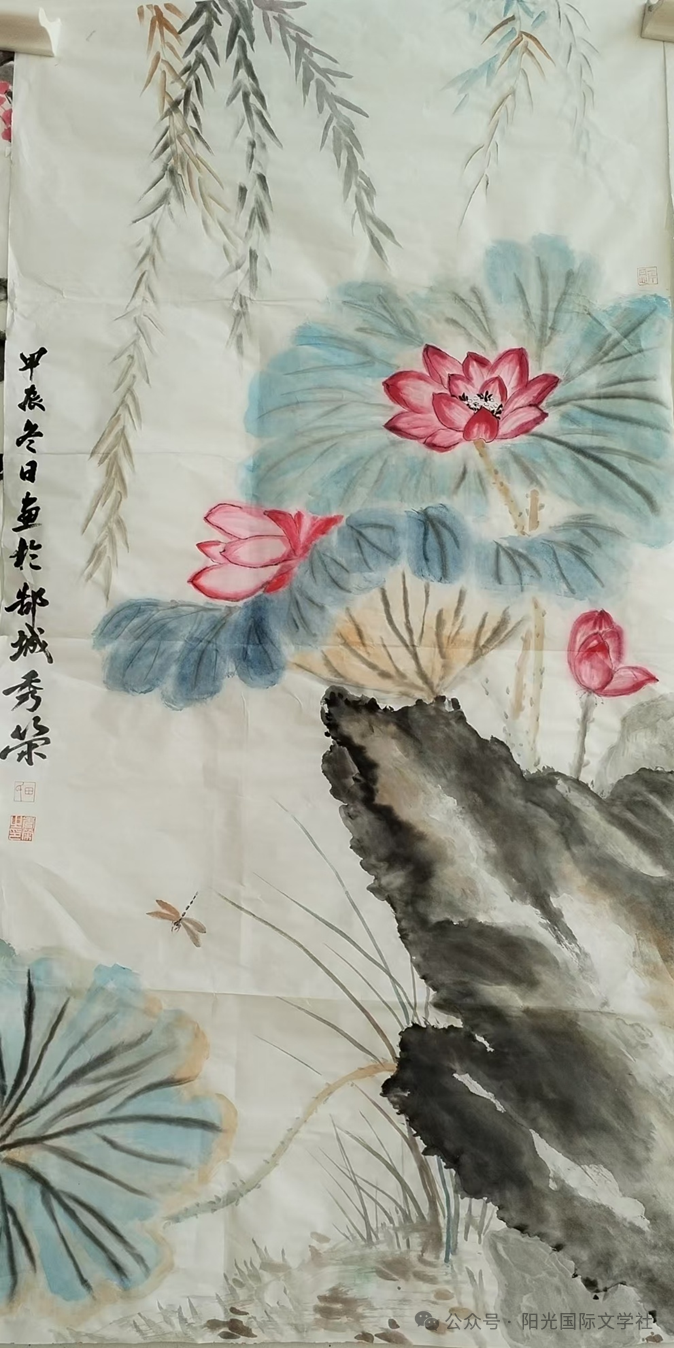 甲辰冬日画於鄀城秀荣
公众号·阳光国际文学社